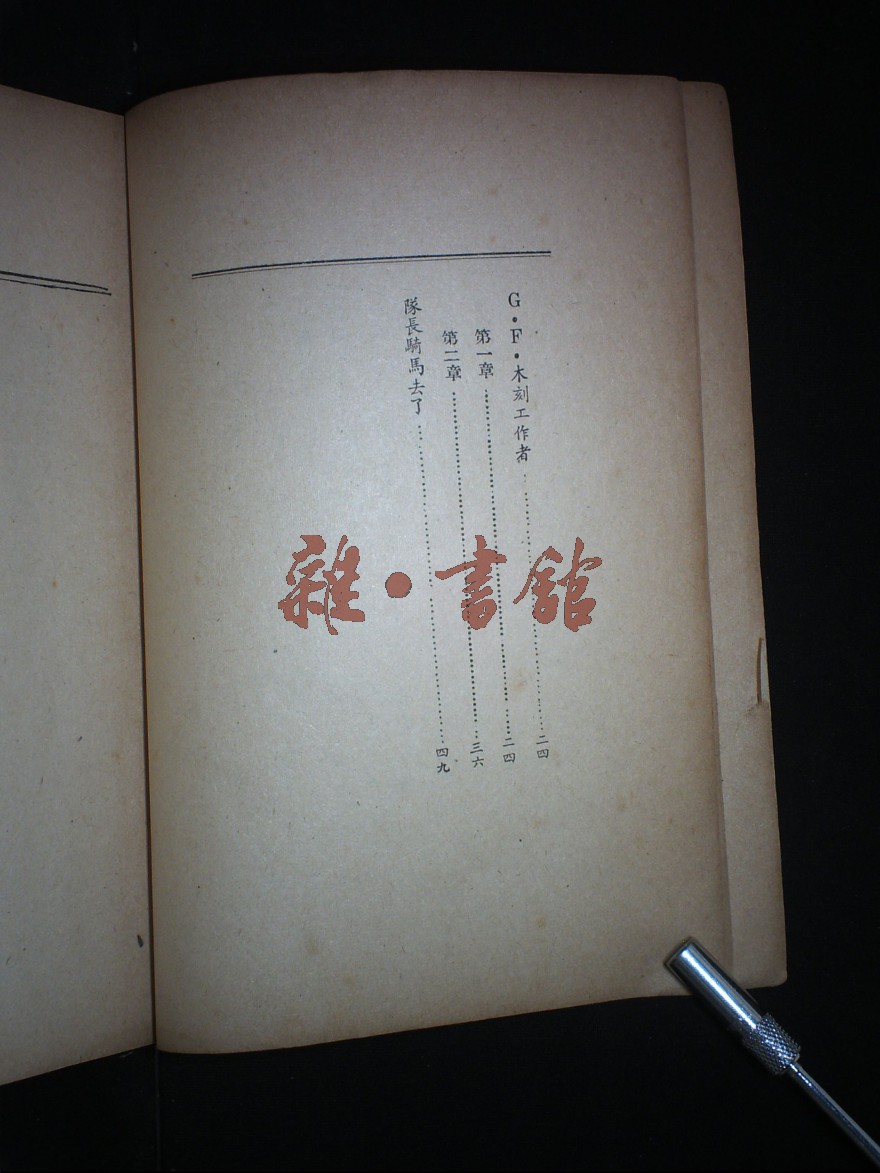 G・F・木刻工作者……二四
第一章……二四
第二章……三六
隊長騎馬去了……四九
雜・書館